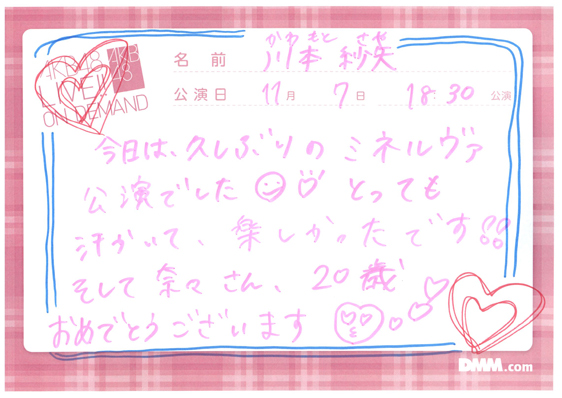 かわもと さや
AKB48 LIVE!! ON DEMAND
AKB48
名前 川本 紗矢
公演日 11月 7日 18:30 公演
今日は、久しぶりのミネルヴァ
公演でした
とっても
汗かいて、楽しかったです!!
そして奈々さん、20歳
おめでとうございます
DMM.com